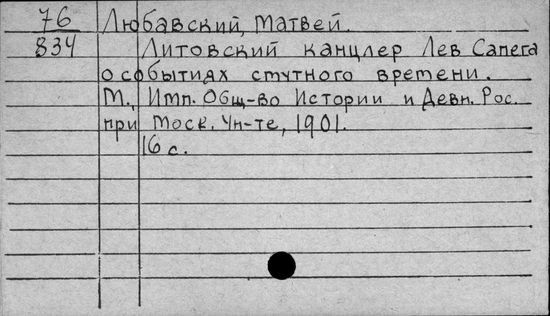 76 Любавский, Матвей.
834 Литовский канцлер Лев Сапега
о событиях смутного времени.
М., Имп. Общ-во Истории и Девн. Рос.
при Моск. Ун-те, 1901.
16 с.